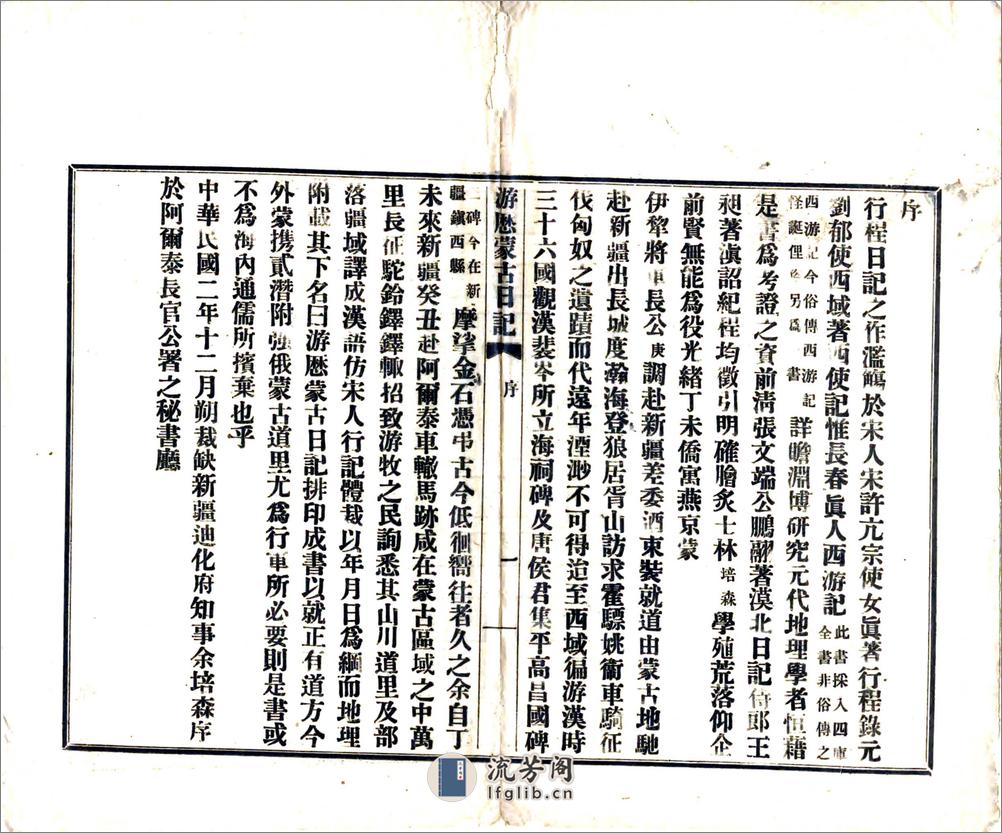 序
行程日記之作濫觴於宋人宋許亢宗使女眞著行程錄元
劉郁使西域著西使記惟長春眞人西游記此書採入四庫全書非俗傳之
西游記今俗傳西游記怪誕俚俗另爲一書詳瞻淵博研究元代地理學者恒藉
是書爲考證之資前淸張文端公鵬翮著漠北日記侍郎王
昶著滇詔紀程均徵引明確膾炙士林培森學殖荒落仰企
前賢無能爲役光緒丁未僑寓燕京蒙
伊犂將軍長公庚調赴新疆差委洒束裝就道由蒙古地馳
赴新疆出長城度瀚海登狼居胥山訪求霍驃姚衞車騎征
伐匈奴之遺蹟而代遠年湮渺不可得迨至西域徧游漢時
三十六國觀漢裴岑所立海祠碑及唐侯君集平高昌國碑
游歷蒙古日記
序
一
二碑今在新疆鎭西縣摩挲金石憑弔古今低徊嚮往者久之余自丁
未來新疆癸丑赴阿爾泰車轍馬跡咸在蒙古區域之中萬
里長征駝鈴鐸鐸輒招致游牧之民詢悉其山川道里及部
落疆域譯成漢語仿宋人行記體裁以年月日爲綱而地理
附載其下名曰游歷蒙古日記排印成書以就正有道方今
外蒙携貳潛附強俄蒙古道里尤爲行軍所必要則是書或
不爲海內通儒所擯棄也乎
中華民國二年十二月朔裁缺新疆迪化府知事余培森序
於阿爾泰長官公署之秘書廳
流芳阁
lfglib.cn